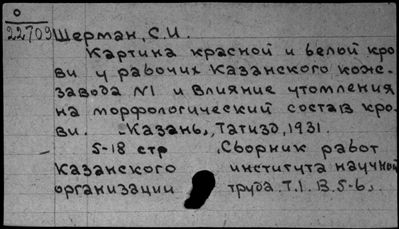 О
22709 Шерман, С.И.
Картина красной и белой кро
ви у рабочих Казанского коже-
завода №1 и влияние утомления
на морфологический состав кро-
ви. Казань, Татизд, 1931.
5-18 стр. Сборник работ
Казанского института научной
организации труда. Т.I. В.5-6.